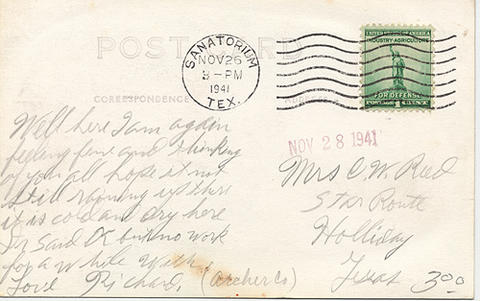 POST CARD
CORRESPONDENCE
SANATORIUM
NOV 26
3-PM
1941
TEX.
UNITED STATES OF AMERICA
INDUSTRY AGRICULTURE
FOR DEFENSE
POSTAGE 1 CENT
NOV 28 1941
Well here I am again
feeling fine and thinking
of you all hope it not
still raining up there
it is cold and dry here
Dr said OK but no work
for a while with
love Richard
(Archer Co)
Mrs C. W. Reed
Star Route
Holliday
Texas
300